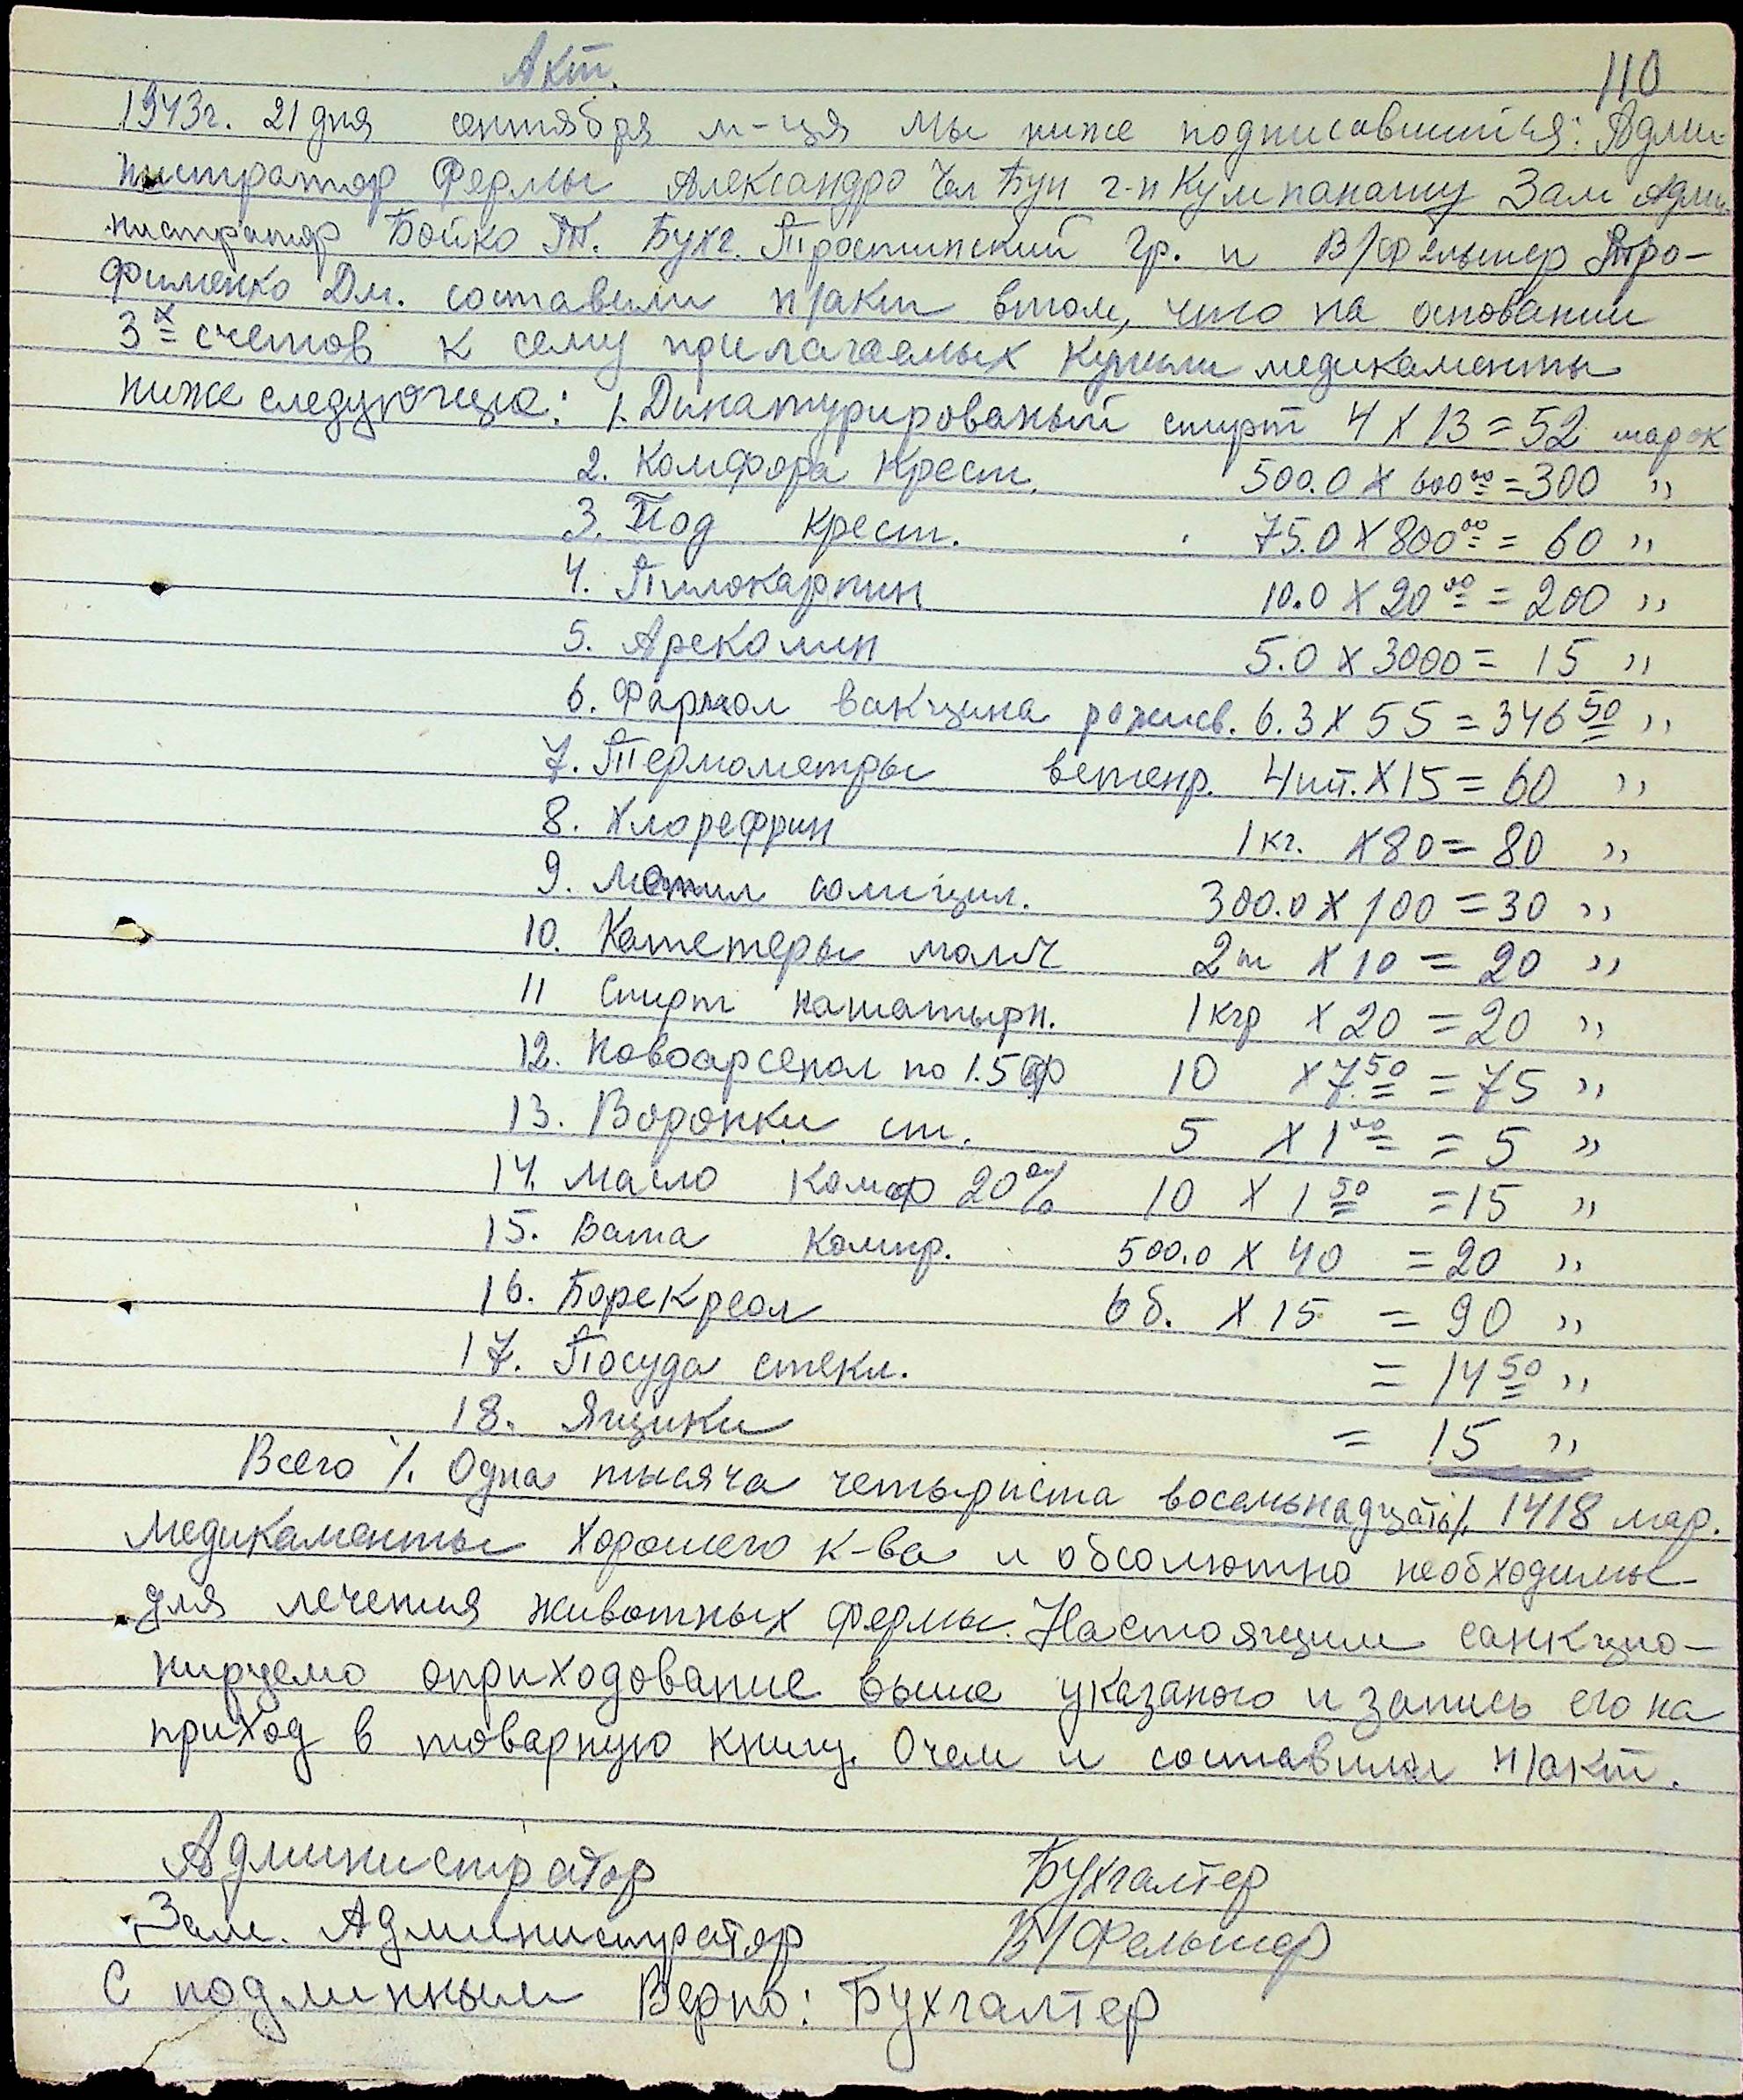 Акт.
110
1943г. 21 дня сентября м-ця Мы ниже подписавшиеся: Адми-
нистратор Фермы Александро Чел Бун г-н Кумпанашу Зам Адми-
нистратор Бойко Т. Бухг. Тростинский Гр. и В/Фельшер Тро-
фименко Дм. составили н/акт втом, что на основании
3х счетов к сему прилагаемых купили медикаменты
ниже следующие: 1. Динатурированый спирт 4 X 13 = 52 марок
2. Комфора Крест. 500.0 X 600 00 = 300 "
3. Иод крест. 75.0 X 800 00 = 60 "
4. Пилокарпин 10.0 X 20 00 = 200 "
5. Ареколин 5.0 X 3000 = 15 "
6. Фармол вакцина рожист. 6.3 X 55 = 346 50 "
7. Термометры ветенр. 4шт. X 15 = 60 "
8. Хлорефрин 1 кг. X 80 = 80 "
9. Метил солицил. 300.0 X 100 = 30 "
10. Катетеры молоч 2 ш X 10 = 20 "
11 Спирт нашатырн. 1 кгр X 20 = 20 "
12. Новоарсенол по 1.5 гр 10 X 7 50 = 75 "
13. Воронки ст. 5 X 1 00 = 5 "
14. Масло комф 20% 10 X 1 50 = 15 "
15. Вата компр. 500.0 X 40 = 20 "
16. Борекреол 6 б. X 15 = 90 "
17. Посуда стекл. = 14 50 "
18. Ящики = 15 "
Всего /. Одна тысяча четыриста восемьнадцать/. 1418 мар.
Медикаменты хорошего к-ва и обсолютно необходимы
для лечения животных фермы. Настоящим санкцио-
нируемо оприходование выше указаного и запись его на
приход в товарную книгу. Очем и составили н/акт.
Администратор Бухгалтер
Зам. Администратор В/Фельшер
С подлинным Верно: Бухгалтер